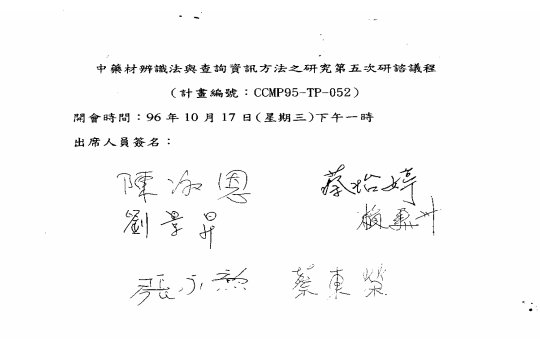 中藥材辨識法與查詢資訊方法之研究第五次研諮議程
(計畫編號：CCMP95-TP-052)
開會時間：96 年 10 月 17 日(星期三)下午一時
出席人員簽名：
陳 恩 蔡怡婷
劉景昇
張 蔡東榮